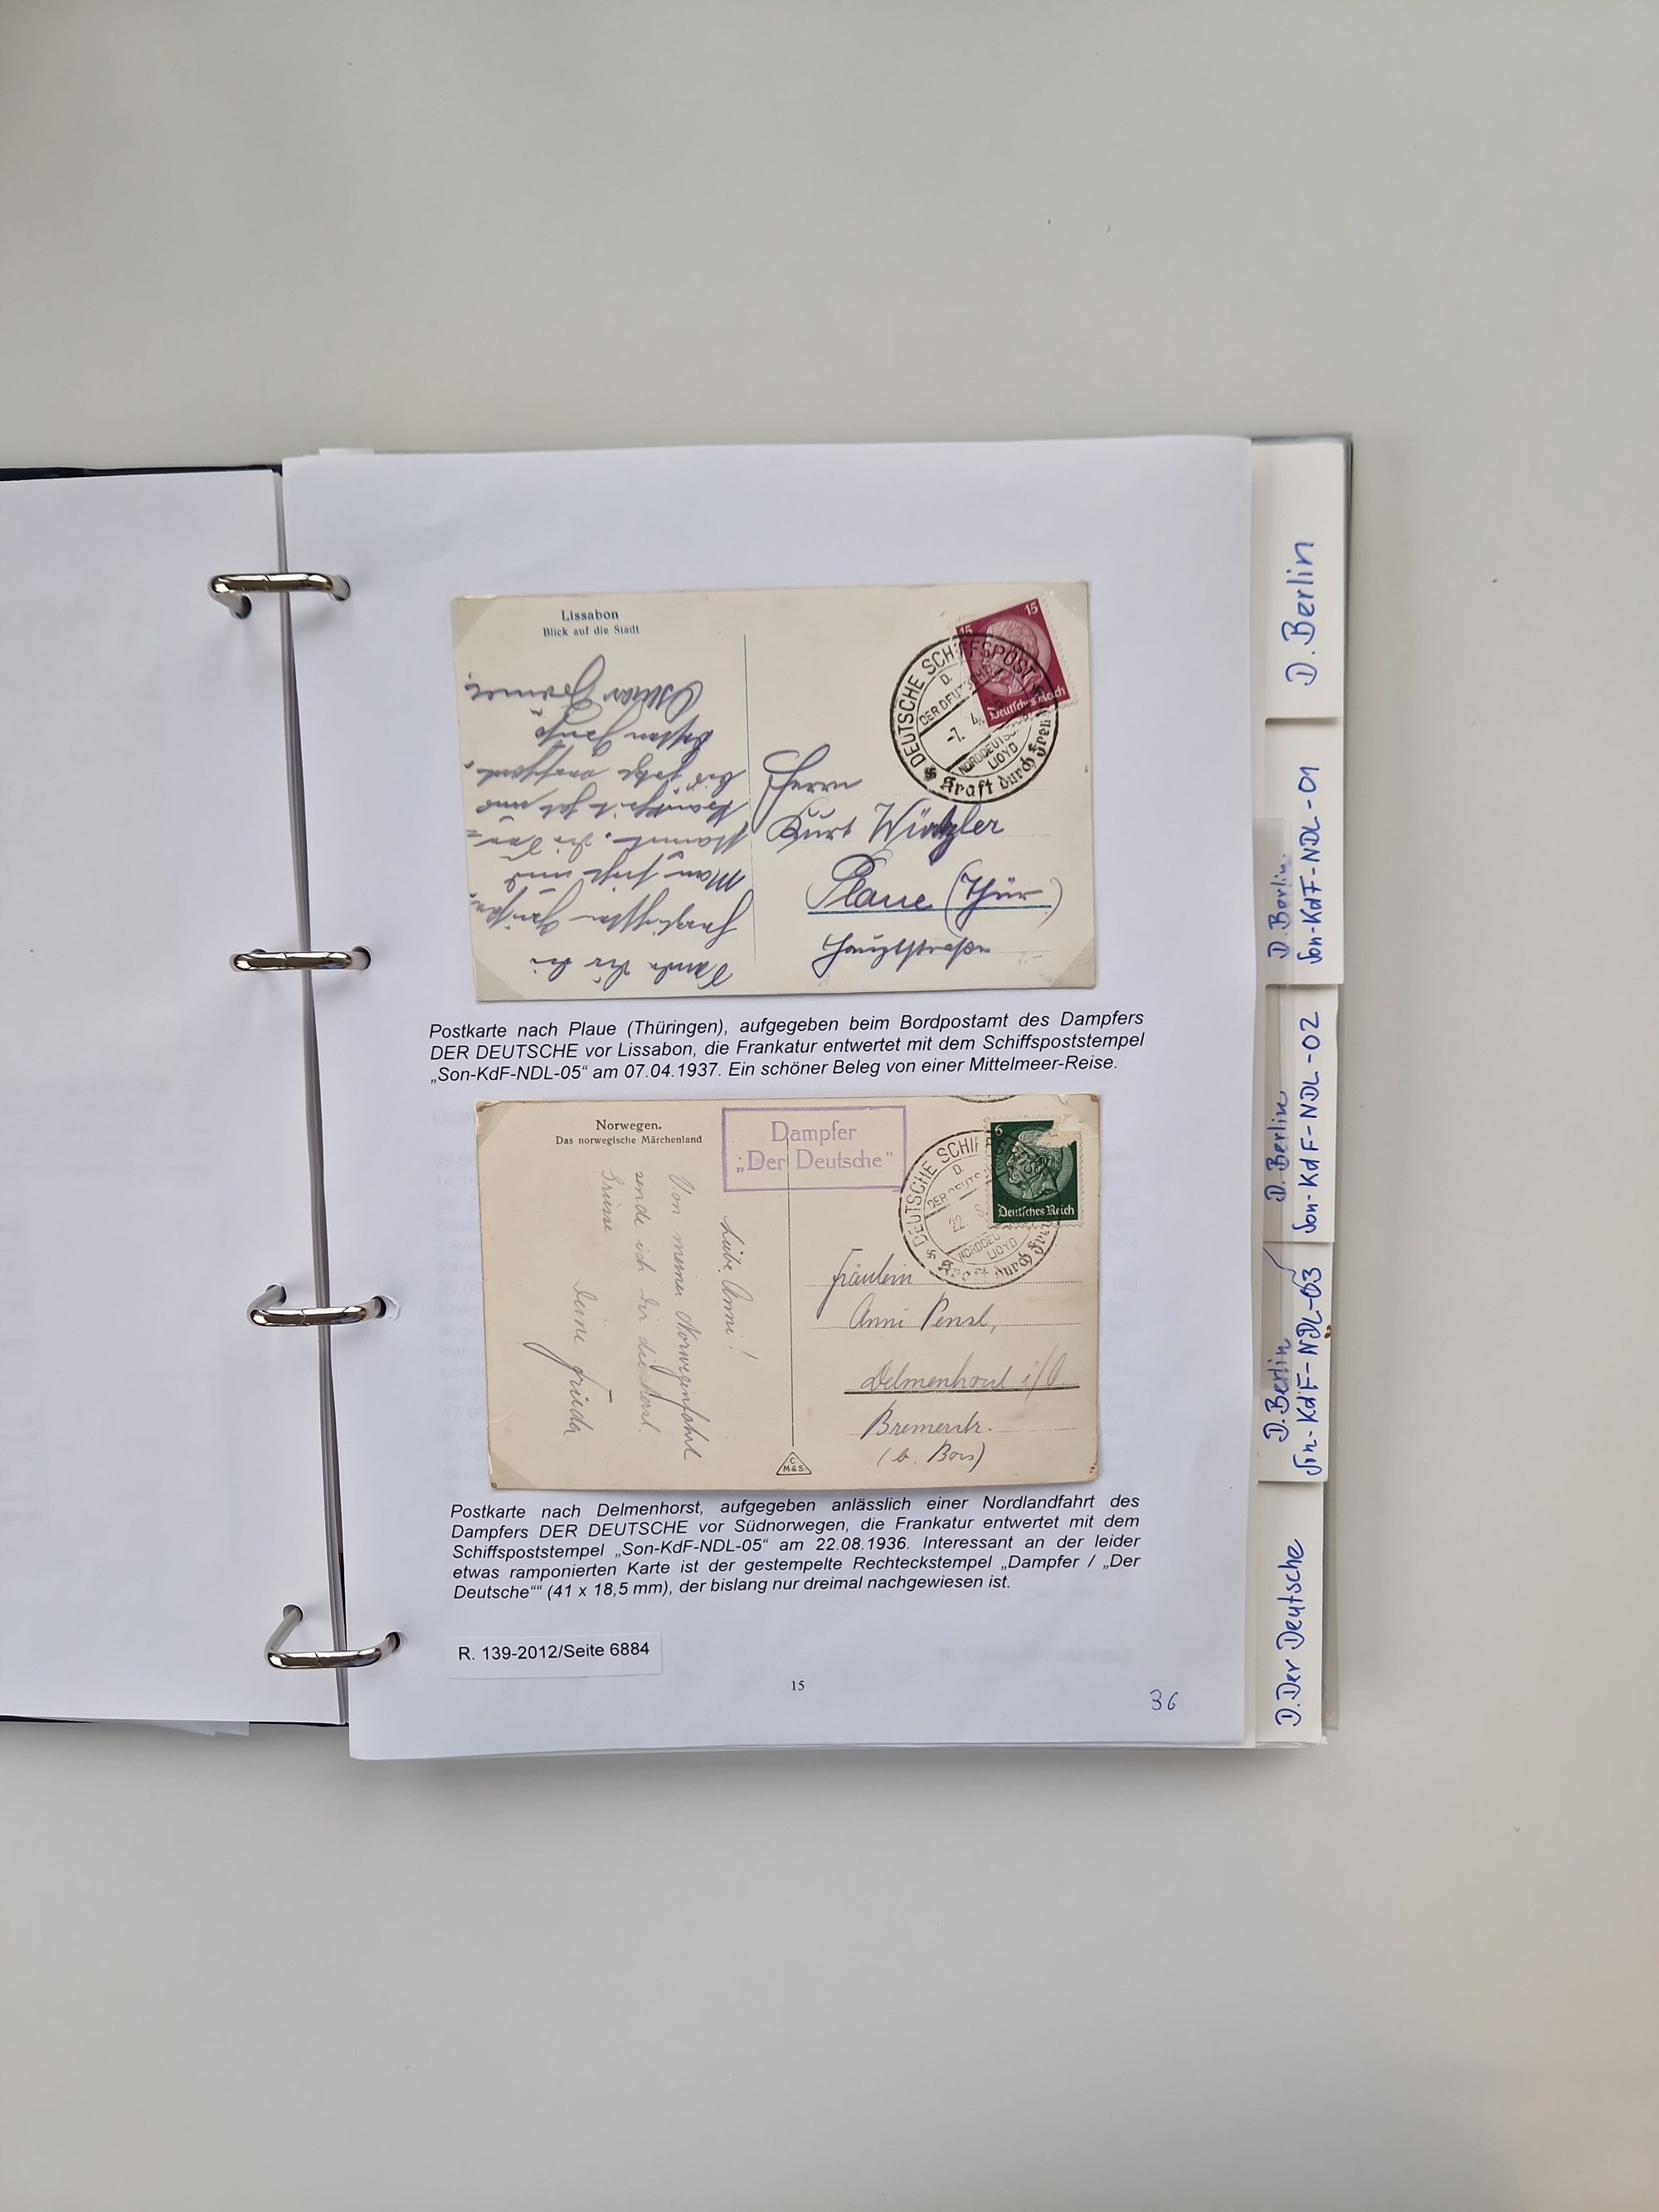 Lissabon
Blick auf die Stadt
15
15
Deutsches Reich
DEUTSCHE SCHIFFSPOST
D.
DER DEUTSCHE
-7. 4.
NORDDEUTSCHER
LLOYD
Kraft durch Freu
Herrn
Kurt Würzler
Plaue (Thür.)
Hauptstraße
Postkarte nach Plaue (Thüringen), aufgegeben beim Bordpostamt des Dampfers
DER DEUTSCHE vor Lissabon, die Frankatur entwertet mit dem Schiffspoststempel
„Son-KdF-NDL-05“ am 07.04.1937. Ein schöner Beleg von einer Mittelmeer-Reise.
Norwegen.
Das norwegische Märchenland
Dampfer
„Der Deutsche“
6
Deutsches Reich
DEUTSCHE SCHIFF
D.
DER DEUTS
22. 8.
NORDDEU
LLOYD
Kraft durch Freu
Liebe Anni!
Von meiner Norwegenfahrt
sende ich Dir die herzl.
Grüsse
Deine Frieda
Fräulein
Anni Pensl,
Delmenhorst i/O.
Bremerstr.
C
M&S
Postkarte nach Delmenhorst, aufgegeben anlässlich einer Nordlandfahrt des
Dampfers DER DEUTSCHE vor Südnorwegen, die Frankatur entwertet mit dem
Schiffspoststempel „Son-KdF-NDL-05“ am 22.08.1936. Interessant an der leider
etwas ramponierten Karte ist der gestempelte Rechteckstempel „Dampfer / „Der
Deutsche““ (41 x 18,5 mm), der bislang nur dreimal nachgewiesen ist.
R. 139-2012/Seite 6884
15
36
D. Berlin
D. Berlin.
Son-KdF-NDL-01
D. Berlin
Son-KdF-NDL-02
D. Berlin
Son-KdF-NDL-03
D. Der Deutsche